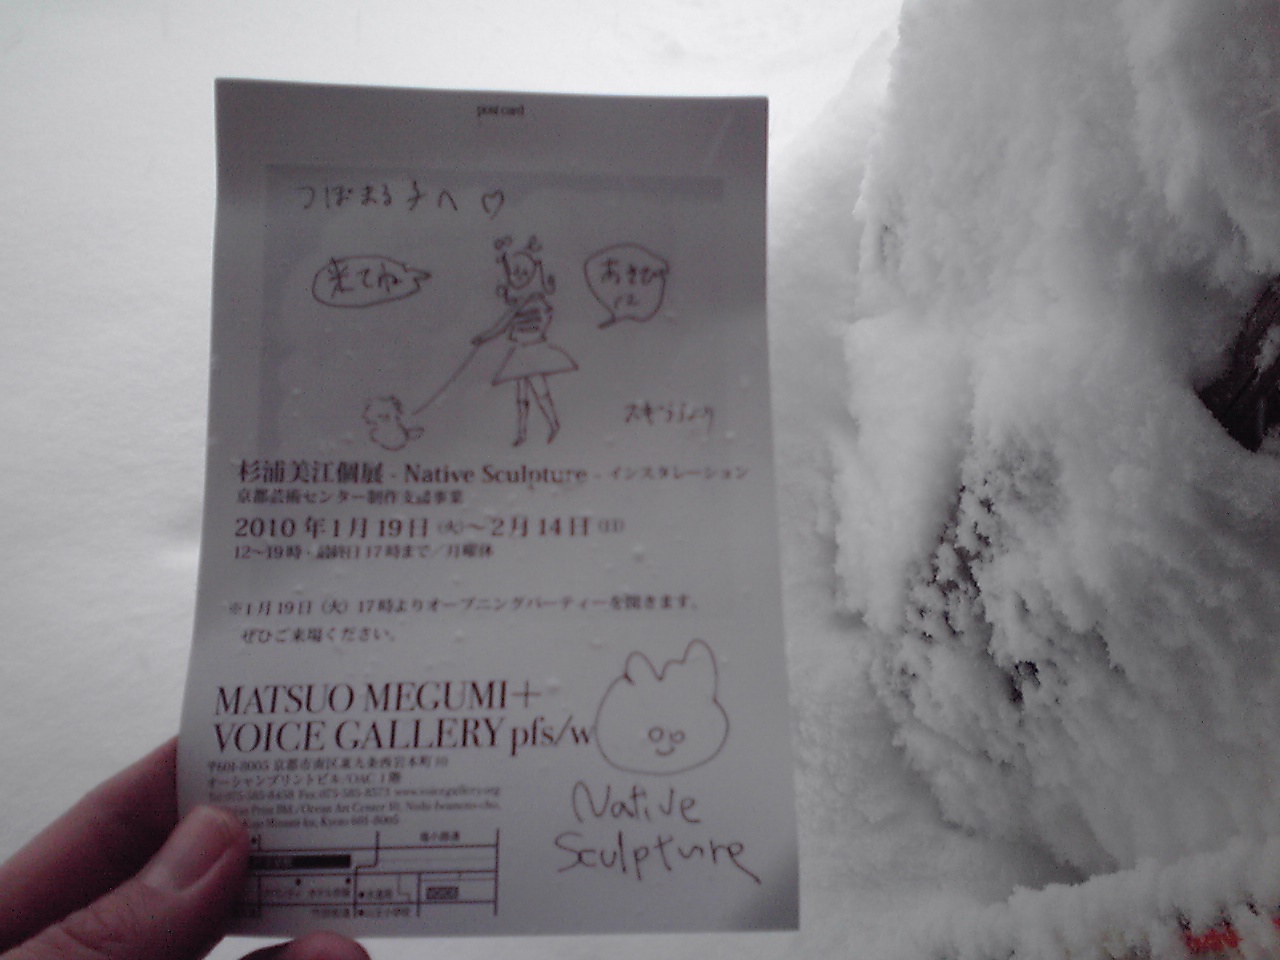 post card
つぼまる子へ♡
来てね
あそびに
杉浦美江個展 - Native Sculpture - インスタレーション
京都芸術センター制作支援事業
2010年1月19日(火)〜2月14日(日)
12〜19時・最終日17時まで/月曜休
※1月19日(火)17時よりオープニングパーティーを開きます。
ぜひご来場ください。
MATSUO MEGUMI+
VOICE GALLERY pfs/w
〒601-8005 京都市南区東九条西岩本町10
オーシャンプリントビル/OAC 1階
Tel 075-585-8458 Fax 075-585-8573 www.voicegallery.org
Print Bld./Ocean Art Center 1F, Nishi-Iwamoto-cho,
Minami-ku, Kyoto 601-8005
Native
Sculpture